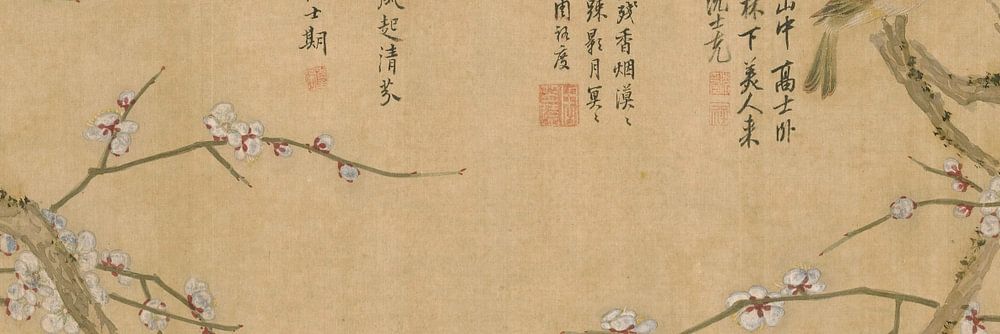 山中高士卧
林下美人来
沈士充
残香烟漠〻
疎影月冥〻
周裕度
風起清芬
士期